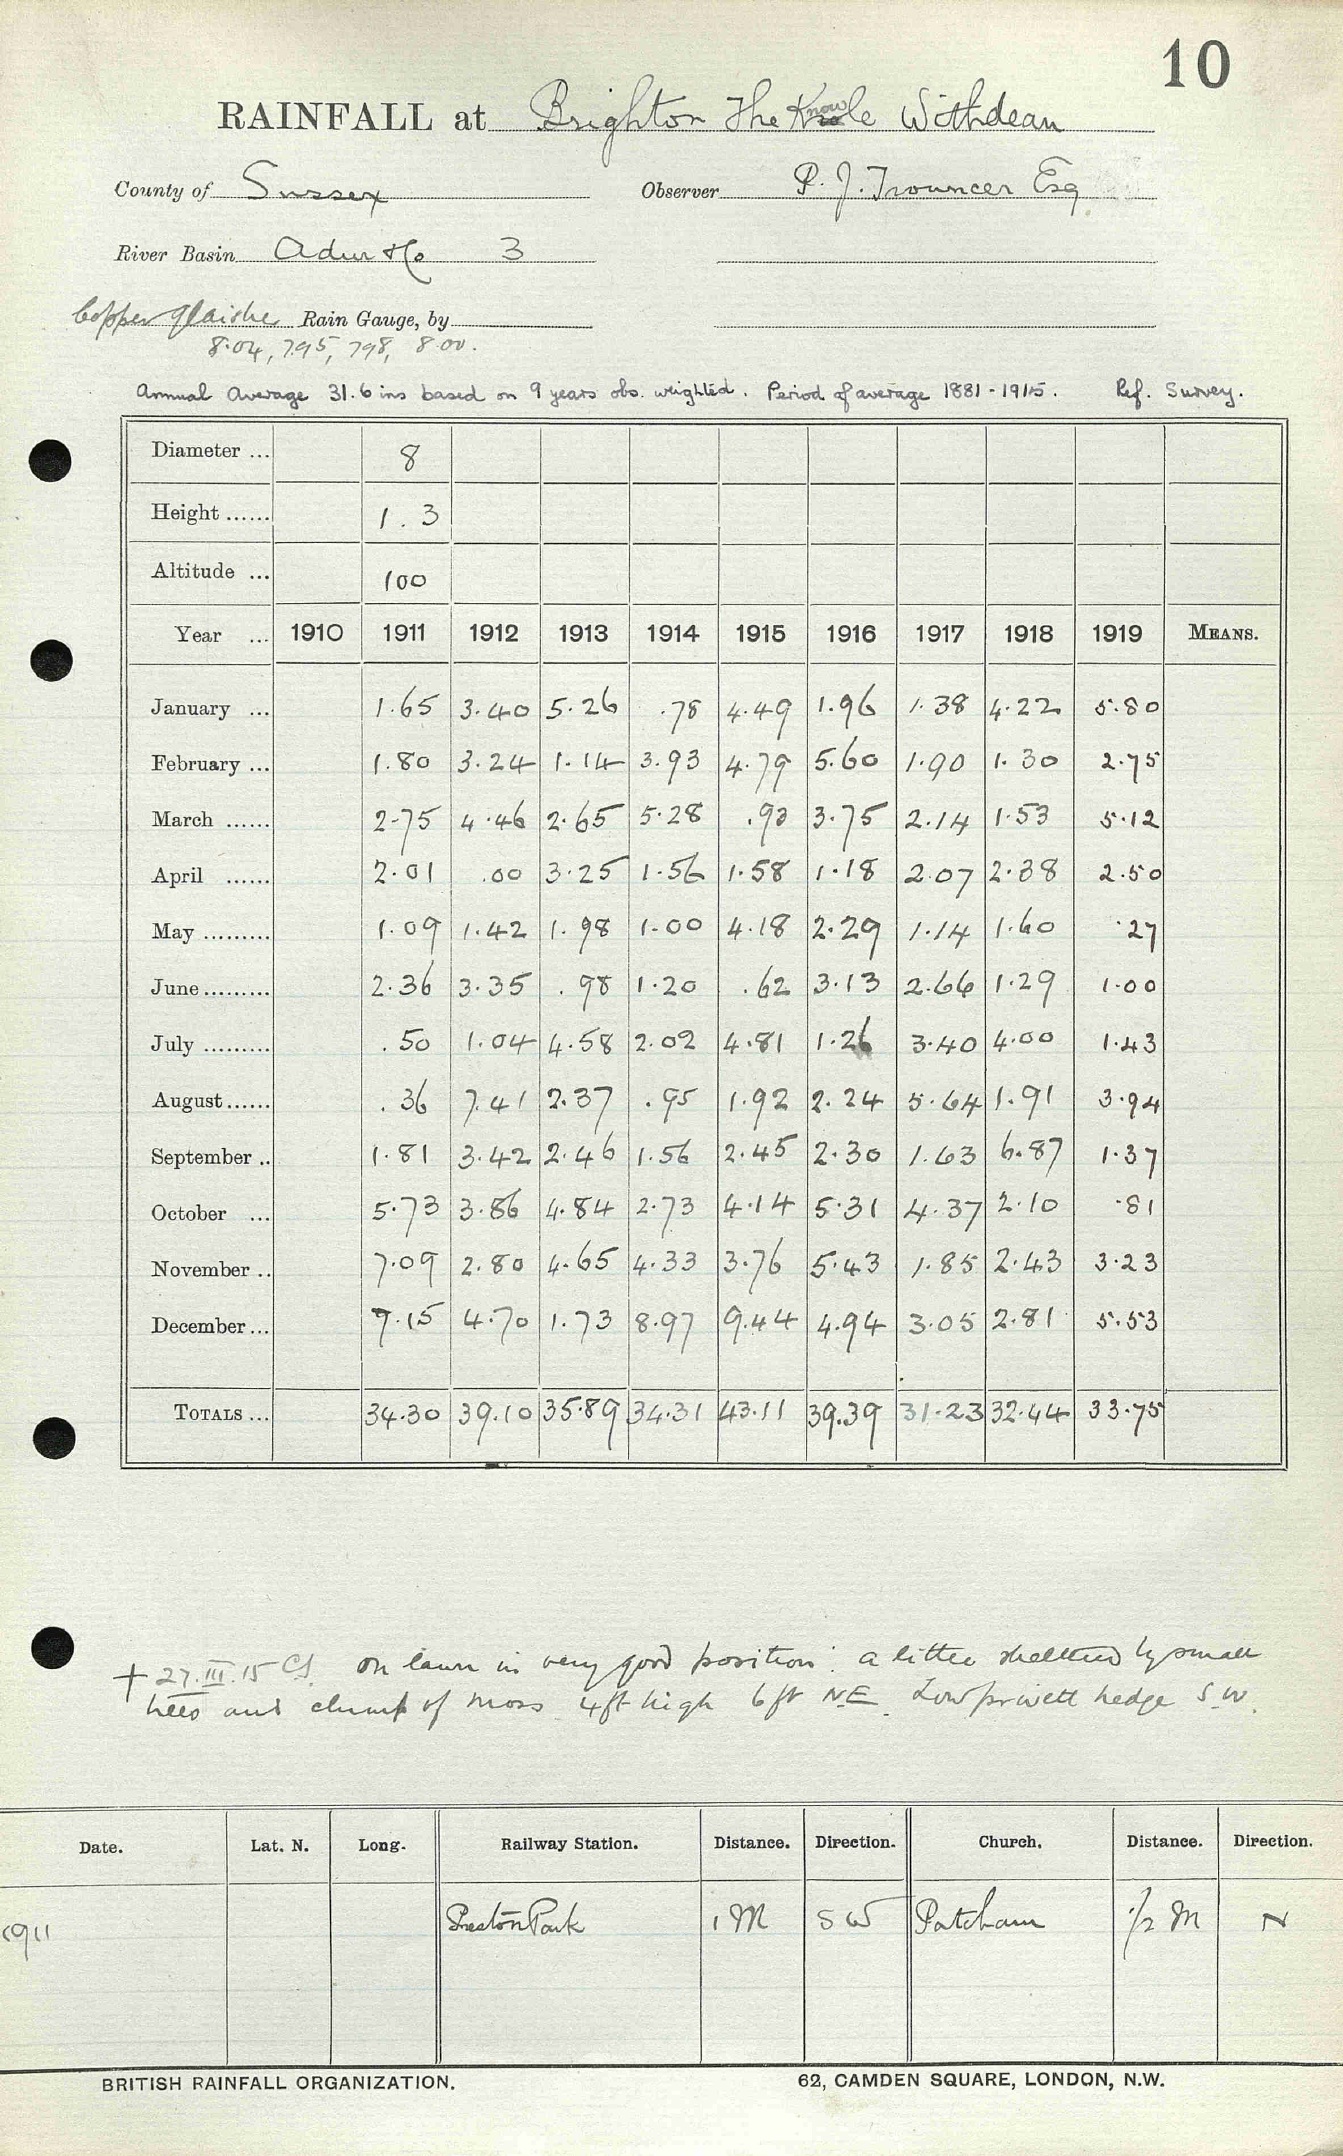 10
RAINFALL at Brighton The Knowle Withdean
County of Sussex Observer P. J. Trouncer Esq
River Basin Adur &c 3
Copper Glaisher Rain Gauge, by
8.04, 7.95, 7.98, 8.00.
Annual Average 31.6 ins based on 9 years obs. weighted. Period of average 1881-1915. Ref. Survey.
Diameter ... 8
Height ...... 1.3
Altitude ... 100
Year ... 1910 1911 1912 1913 1914 1915 1916 1917 1918 1919 MEANS.
January ... 1.65 3.40 5.26 .78 4.49 1.96 1.38 4.22 5.80
February ... 1.80 3.24 1.14 3.93 4.79 5.60 1.90 1.30 2.75
March ...... 2.75 4.46 2.65 5.28 .93 3.75 2.14 1.53 5.12
April ...... 2.01 .00 3.25 1.56 1.58 1.18 2.07 2.38 2.50
May ......... 1.09 1.42 1.98 1.00 4.18 2.29 1.14 1.60 .27
June ......... 2.36 3.35 .98 1.20 .62 3.13 2.66 1.29 1.00
July ......... .50 1.04 4.58 2.02 4.81 1.26 3.40 4.00 1.43
August ...... .36 7.41 2.37 .95 1.92 2.24 5.64 1.91 3.94
September .. 1.81 3.42 2.46 1.56 2.45 2.30 1.63 6.87 1.37
October ... 5.73 3.86 4.84 2.73 4.14 5.31 4.37 2.10 .81
November .. 7.09 2.80 4.65 4.33 3.76 5.43 1.85 2.43 3.23
December ... 7.15 4.70 1.73 8.97 9.44 4.94 3.05 2.81 5.53
TOTALS ... 34.30 39.10 35.89 34.31 43.11 39.39 31.23 32.44 33.75
+ 27.III.15 CS. On lawn in very good position: a little sheltered by small
trees and clump of moss 4ft high 6ft NE. Low privett hedge S.W.
Date. Lat. N. Long. Railway Station. Distance. Direction. Church. Distance. Direction.
1911 Preston Park 1 M SW Patcham 1/2 M N
BRITISH RAINFALL ORGANIZATION. 62, CAMDEN SQUARE, LONDON, N.W.